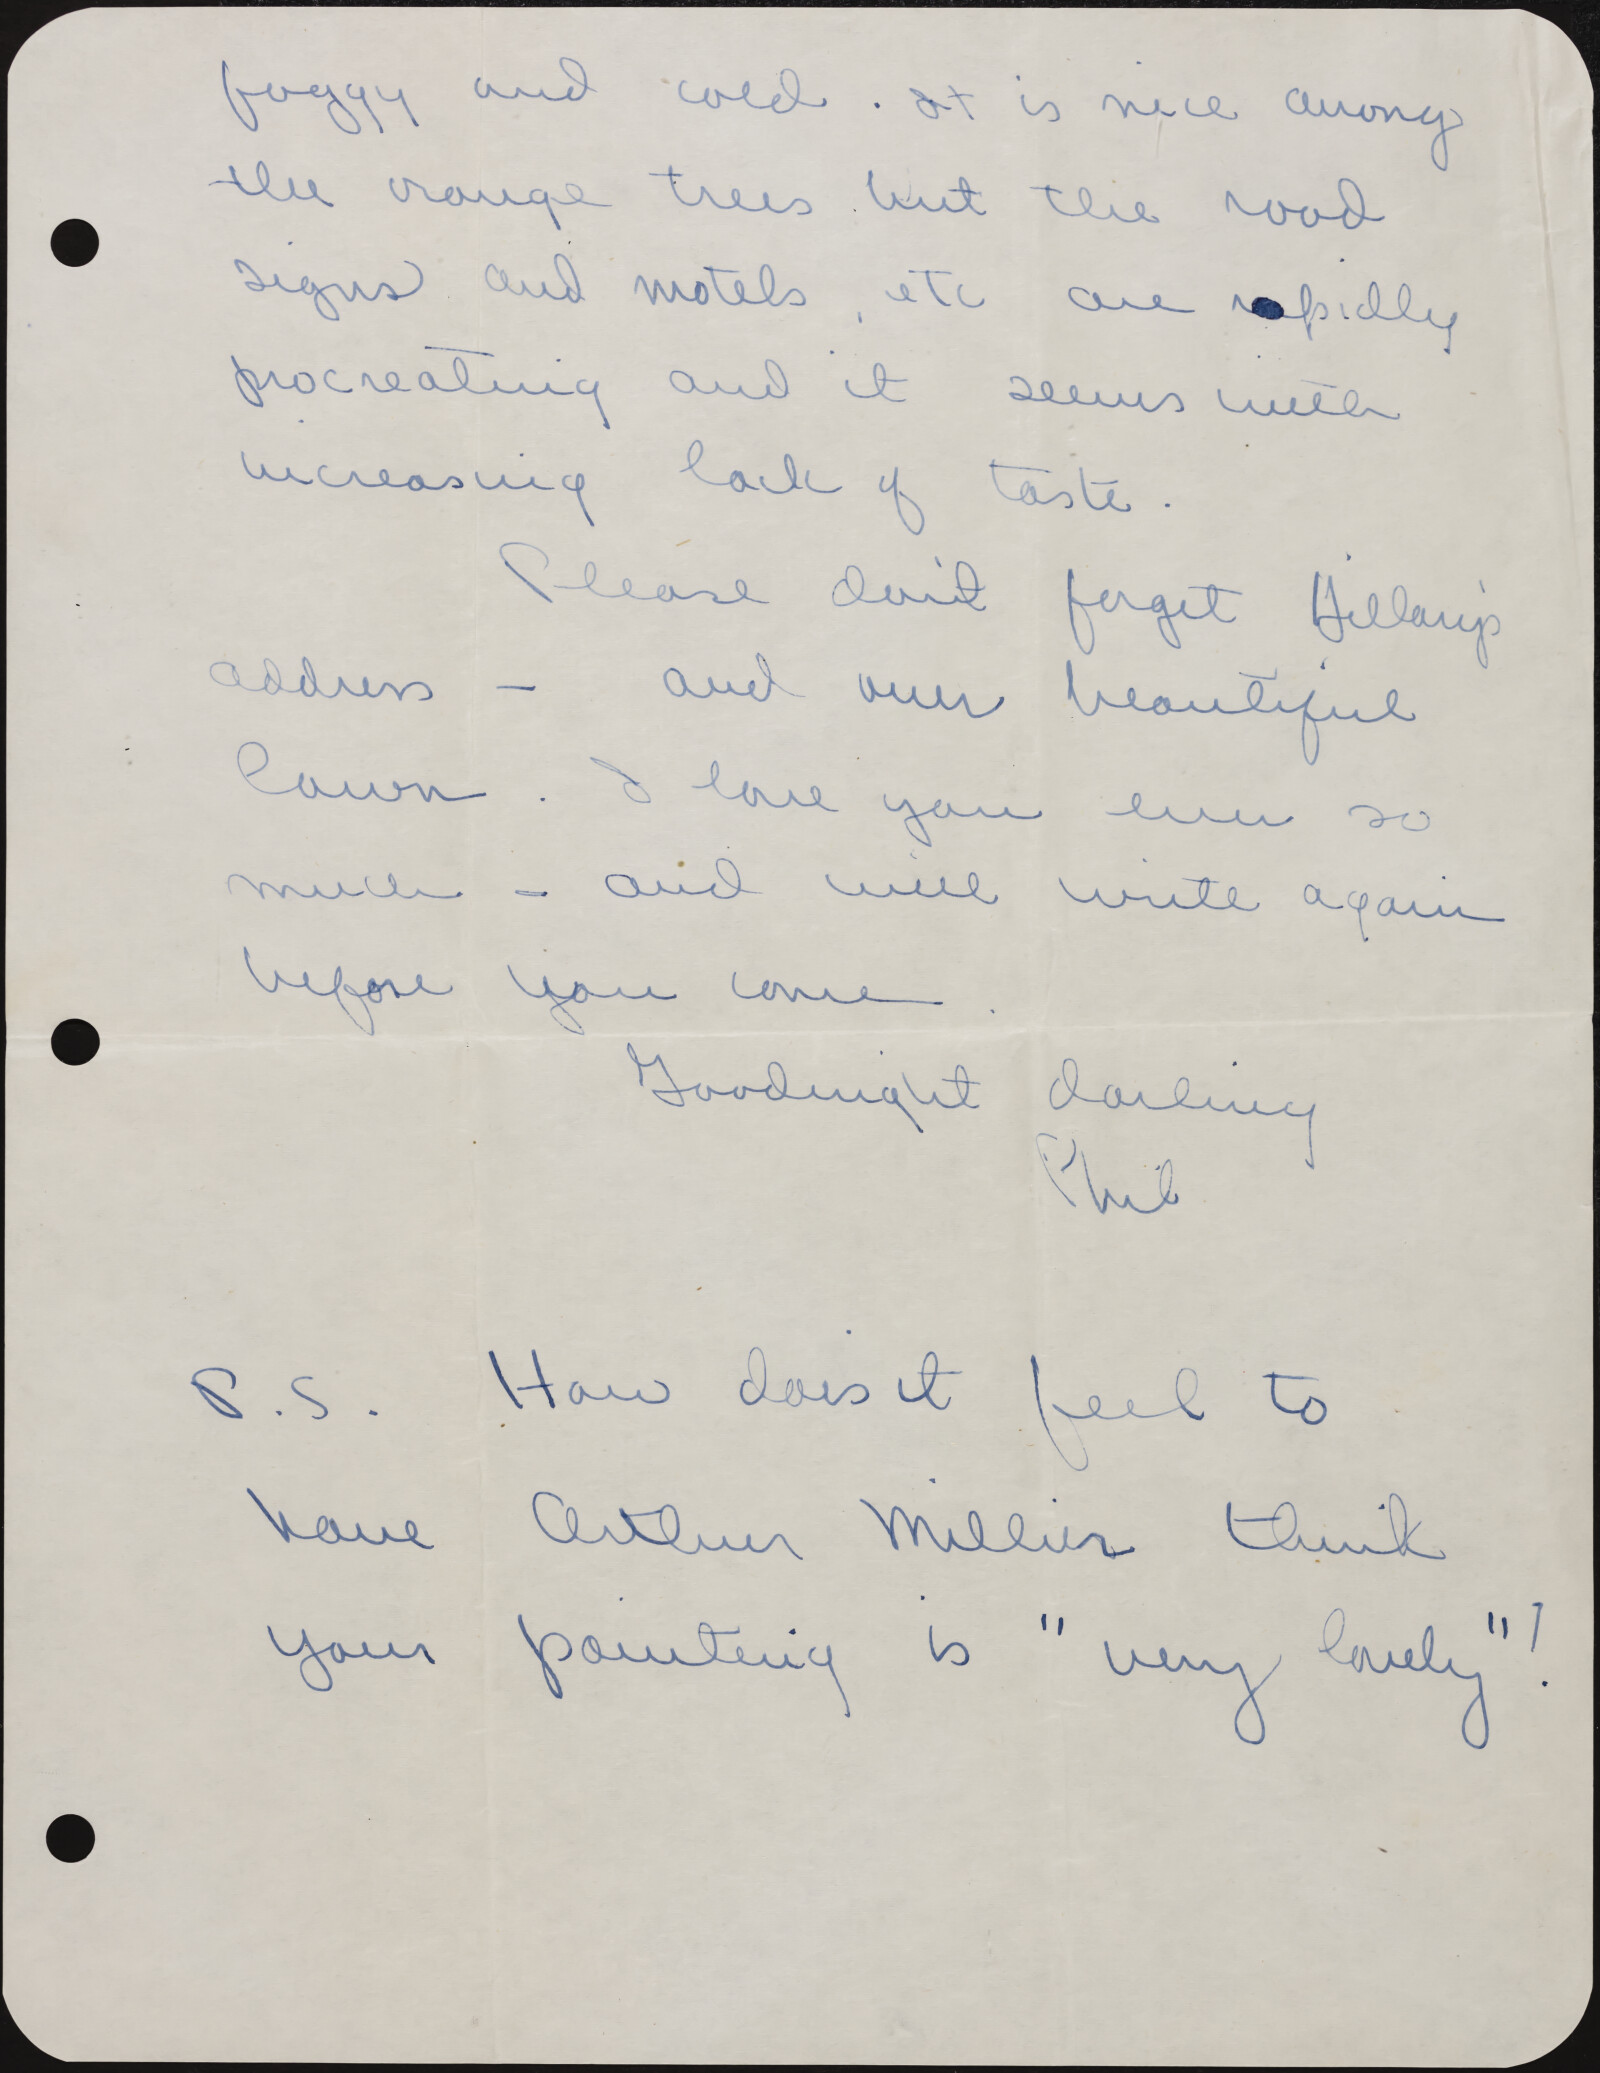 foggy and cold. It is nice among
the orange trees but the road
signs and motels, etc are rapidly
procreating and it seems with
increasing lack of taste.
Please don't forget Hillary's
address - and our beautiful
lawn. I love you ever so
much - and will write again
before you come.
Goodnight darling
Phil
P.S. How does it feel to
have Arthur Millier think
your painting is "very lovely"!